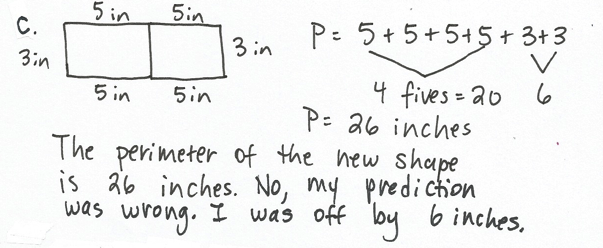 C.
5 in 5in
3in
3 in
5 in 5in
P= 5+5+5+5+3+3
4 fives = 20 6
P= 26 inches
The perimeter of the new shape
is 26 inches. No, my prediction
was wrong. I was off by 6 inches.